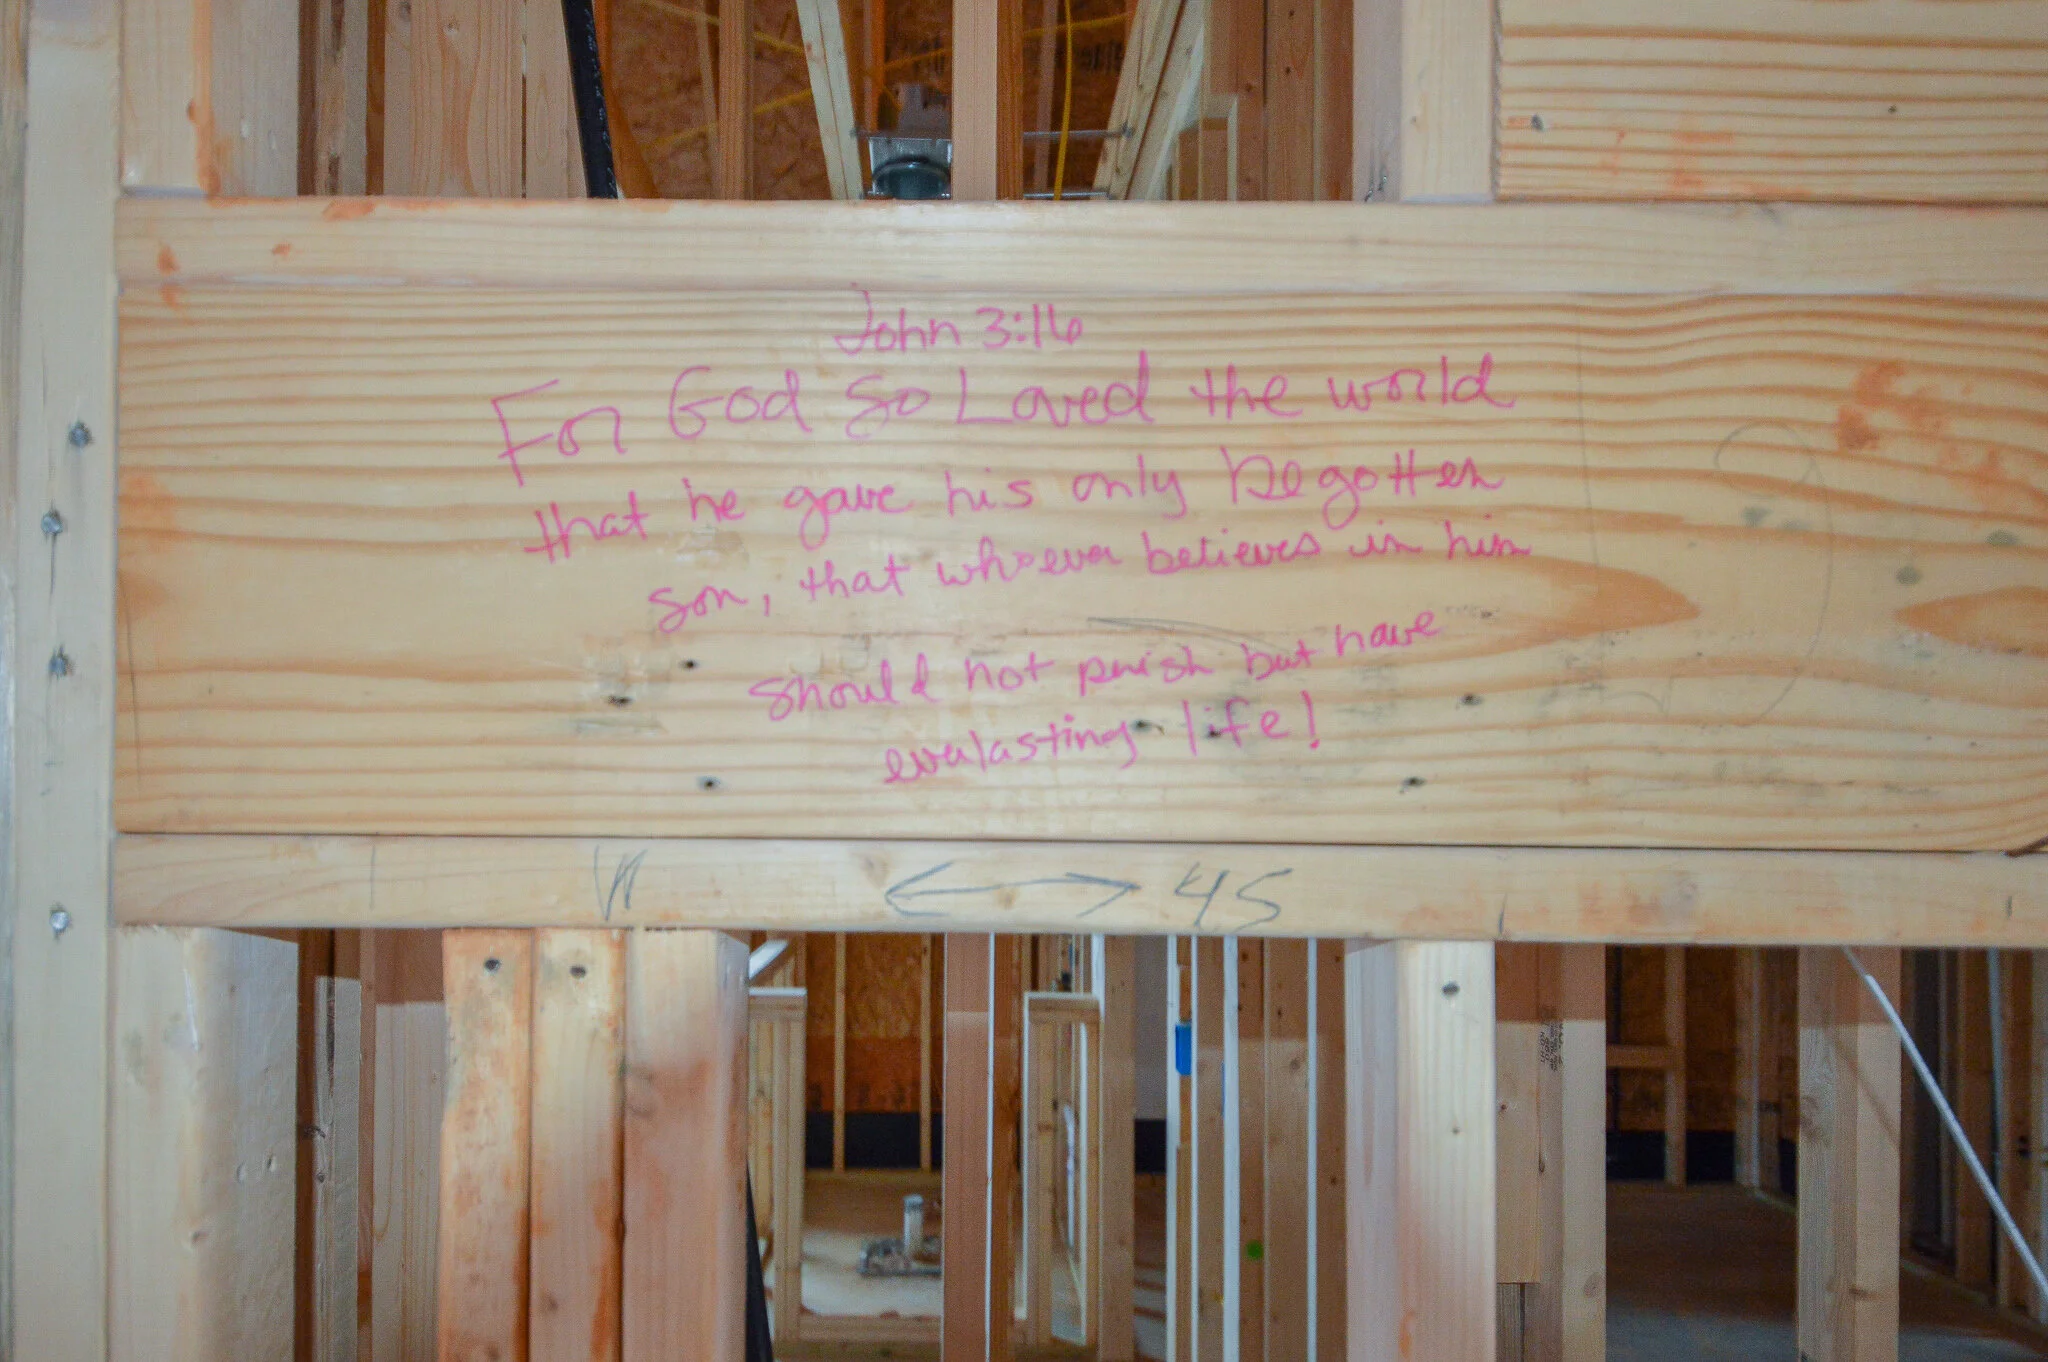 John 3:16
For God so Loved the world
that he gave his only begotten
son, that whoever believes in him
should not perish but have
everlasting life!
45